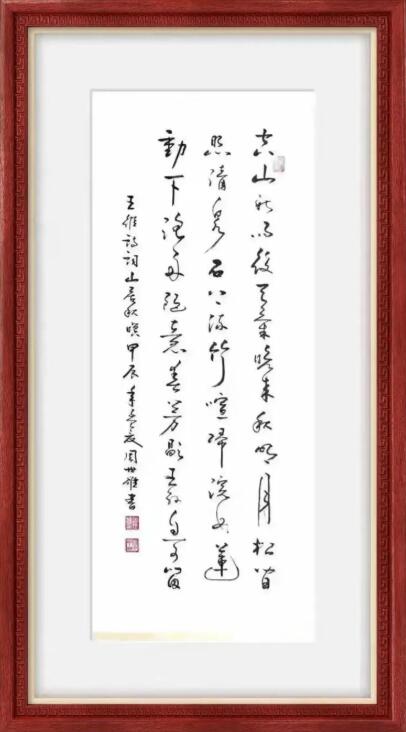 空山新雨後天氣晚來秋明月松間
照清泉石上流竹喧歸浣女蓮
動下漁舟隨意春芳歇王孫自可留
王維詩詞山居秋暝甲辰年周世雄書